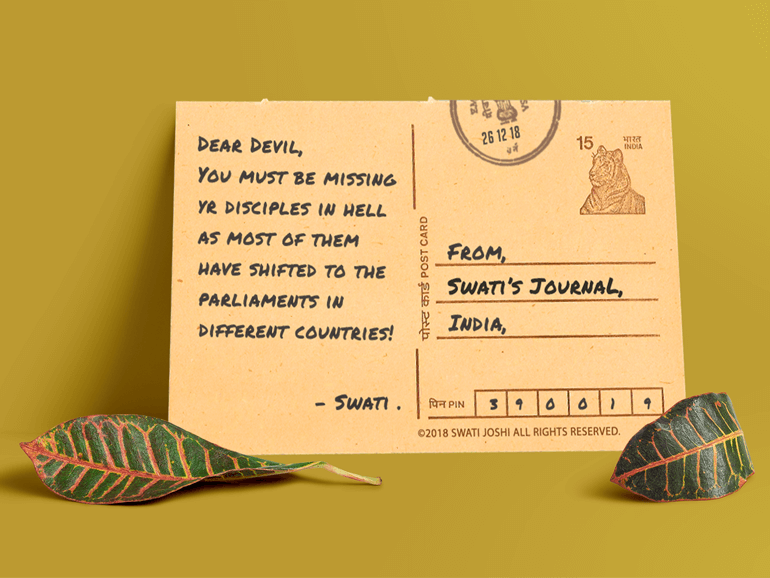 DEAR DEVIL,
YOU MUST BE MISSING
YR DISCIPLES IN HELL
AS MOST OF THEM
HAVE SHIFTED TO THE
PARLIAMENTS IN
DIFFERENT COUNTRIES!
- SWATI .
पोस्ट कार्ड POST CARD
26 12 18
15
भारत
INDIA
FROM,
SWATI'S JOURNAL,
INDIA,
पिन PIN 390019
©2018 SWATI JOSHI ALL RIGHTS RESERVED.